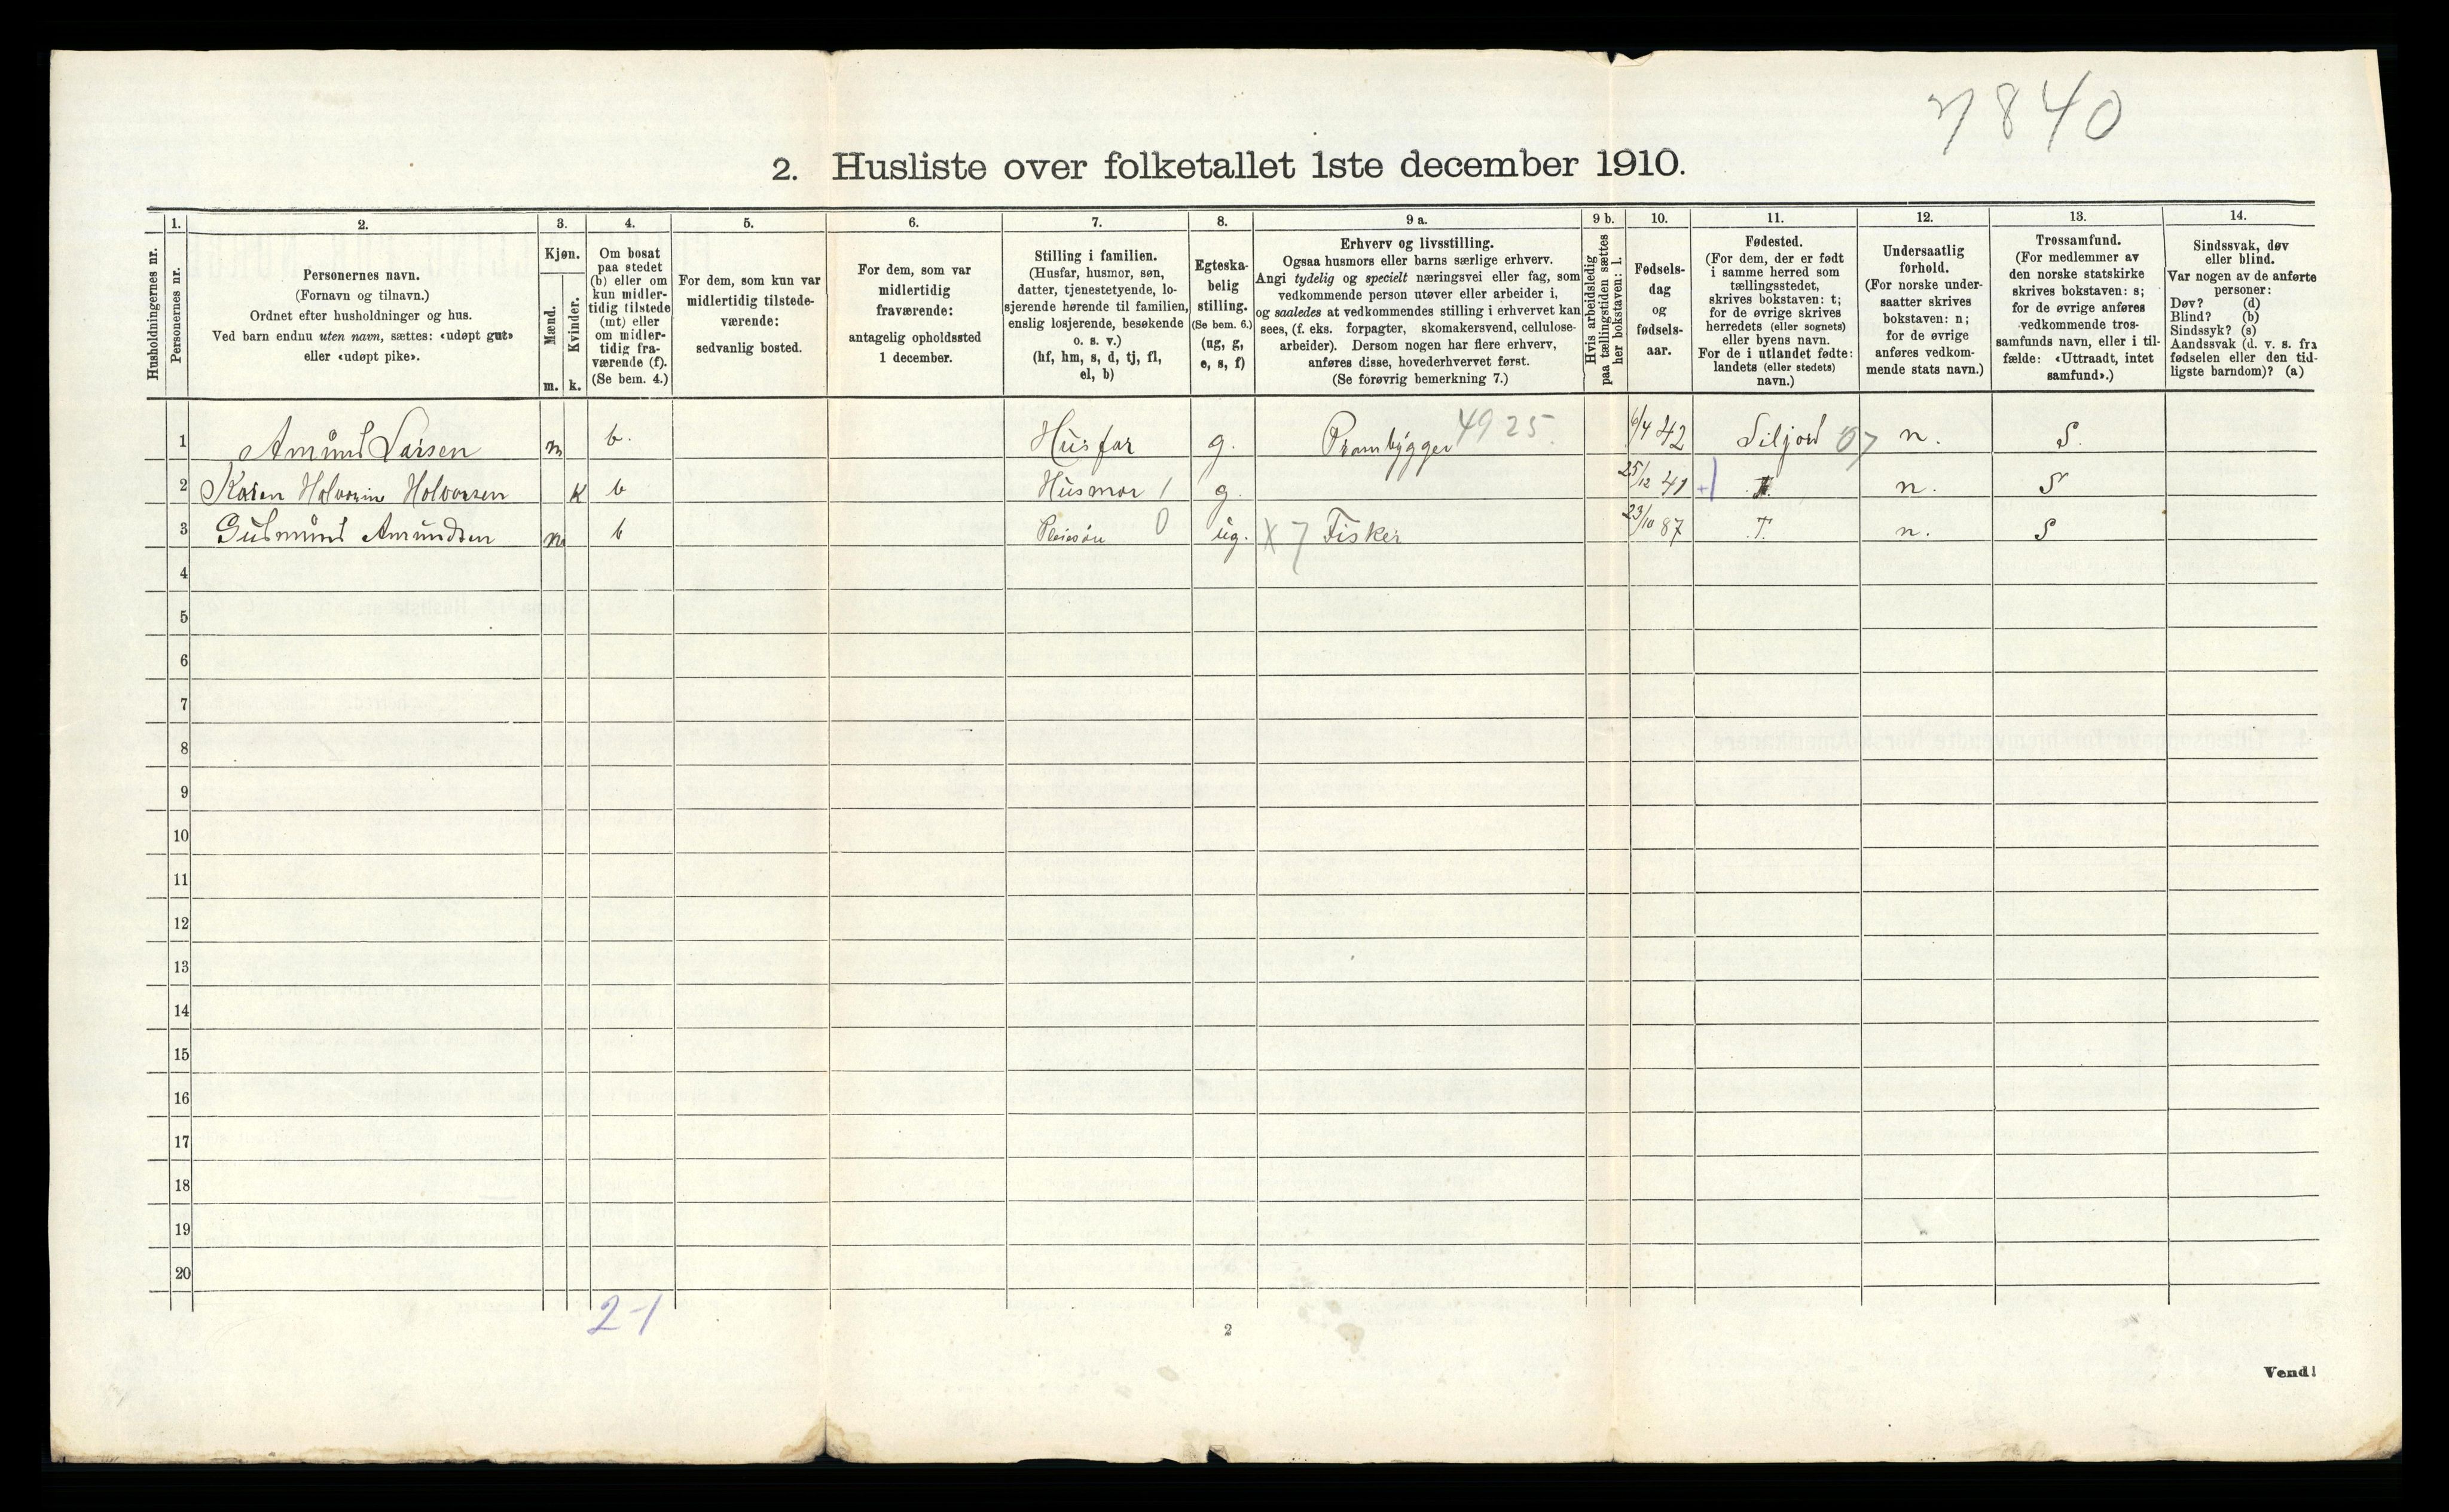 7840
2. Husliste over folketallet 1ste december 1910.
Husholdningernes nr.
1.
Personernes nr.
2.
Personernes navn.
(Fornavn og tilnavn.)
Ordnet efter husholdninger og hus.
Ved barn endnu uten navn, sættes: «udøpt gut»
eller «udøpt pike».
3.
Kjøn.
Mænd.
Kvinder.
m. k.
4.
Om bosat
paa stedet
(b) eller om
kun midler-
tidig tilstede
(mt) eller
om midler-
tidig fra-
værende (f).
(Se bem. 4.)
5.
For dem, som kun var
midlertidig tilstede-
værende:
sedvanlig bosted.
6.
For dem, som var
midlertidig
fraværende:
antagelig opholdssted
1 december.
7.
Stilling i familien.
(Husfar, husmor, søn,
datter, tjenestetyende, lo-
sjerende hørende til familien,
enslig losjerende, besøkende
o. s. v.)
(hf, hm, s, d, tj, fl,
el, b)
8.
Egteska-
belig
stilling.
(Se bem. 6.)
(ug, g,
e, s, f)
9 a.
Erhverv og livsstilling.
Ogsaa husmors eller barns særlige erhverv.
Angi tydelig og specielt næringsvei eller fag, som
vedkommende person utøver eller arbeider i,
og saaledes at vedkommendes stilling i erhvervet kan
sees, (f. eks. forpagter, skomakersvend, cellulose-
arbeider). Dersom nogen har flere erhverv,
anføres disse, hovederhvervet først.
(Se forøvrig bemerkning 7.)
9 b.
Hvis arbeidsledig
paa tællingstiden sættes
her bokstaven: l.
10.
Fødsels-
dag
og
fødsels-
aar.
11.
Fødested.
(For dem, der er født
i samme herred som
tællingsstedet,
skrives bokstaven: t;
for de øvrige skrives
herredets (eller sognets)
eller byens navn.
For de i utlandet fødte:
landets (eller stedets)
navn.)
12.
Undersaatlig
forhold.
(For norske under-
saatter skrives
bokstaven: n;
for de øvrige
anføres vedkom-
mende stats navn.)
13.
Trossamfund.
(For medlemmer av
den norske statskirke
skrives bokstaven: s;
for de øvrige anføres
vedkommende tros-
samfunds navn, eller i til-
fælde: «Uttraadt, intet
samfund».)
14.
Sindssvak, døv
eller blind.
Var nogen av de anførte
personer:
Døv? (d)
Blind? (b)
Sindssyk? (s)
Aandssvak (d. v. s. fra
fødselen eller den tid-
ligste barndom)? (a)
1 Amund Larsen m b. Husfar g. Prambygger 4925. 6/4 42 Siljord 07 n. S.
2 Karen Holvorine Holvorsen K b Husmor 1 g. 25/12 41 +1 T. n. S
3 Gudmund Amundsen m b Pleiesøn 0 ug. X 7 Fisker 23/10 87 T. n. S
4
5
6
7
8
9
10
11
12
13
14
15
16
17
18
19
20
2-1
2
Vend!